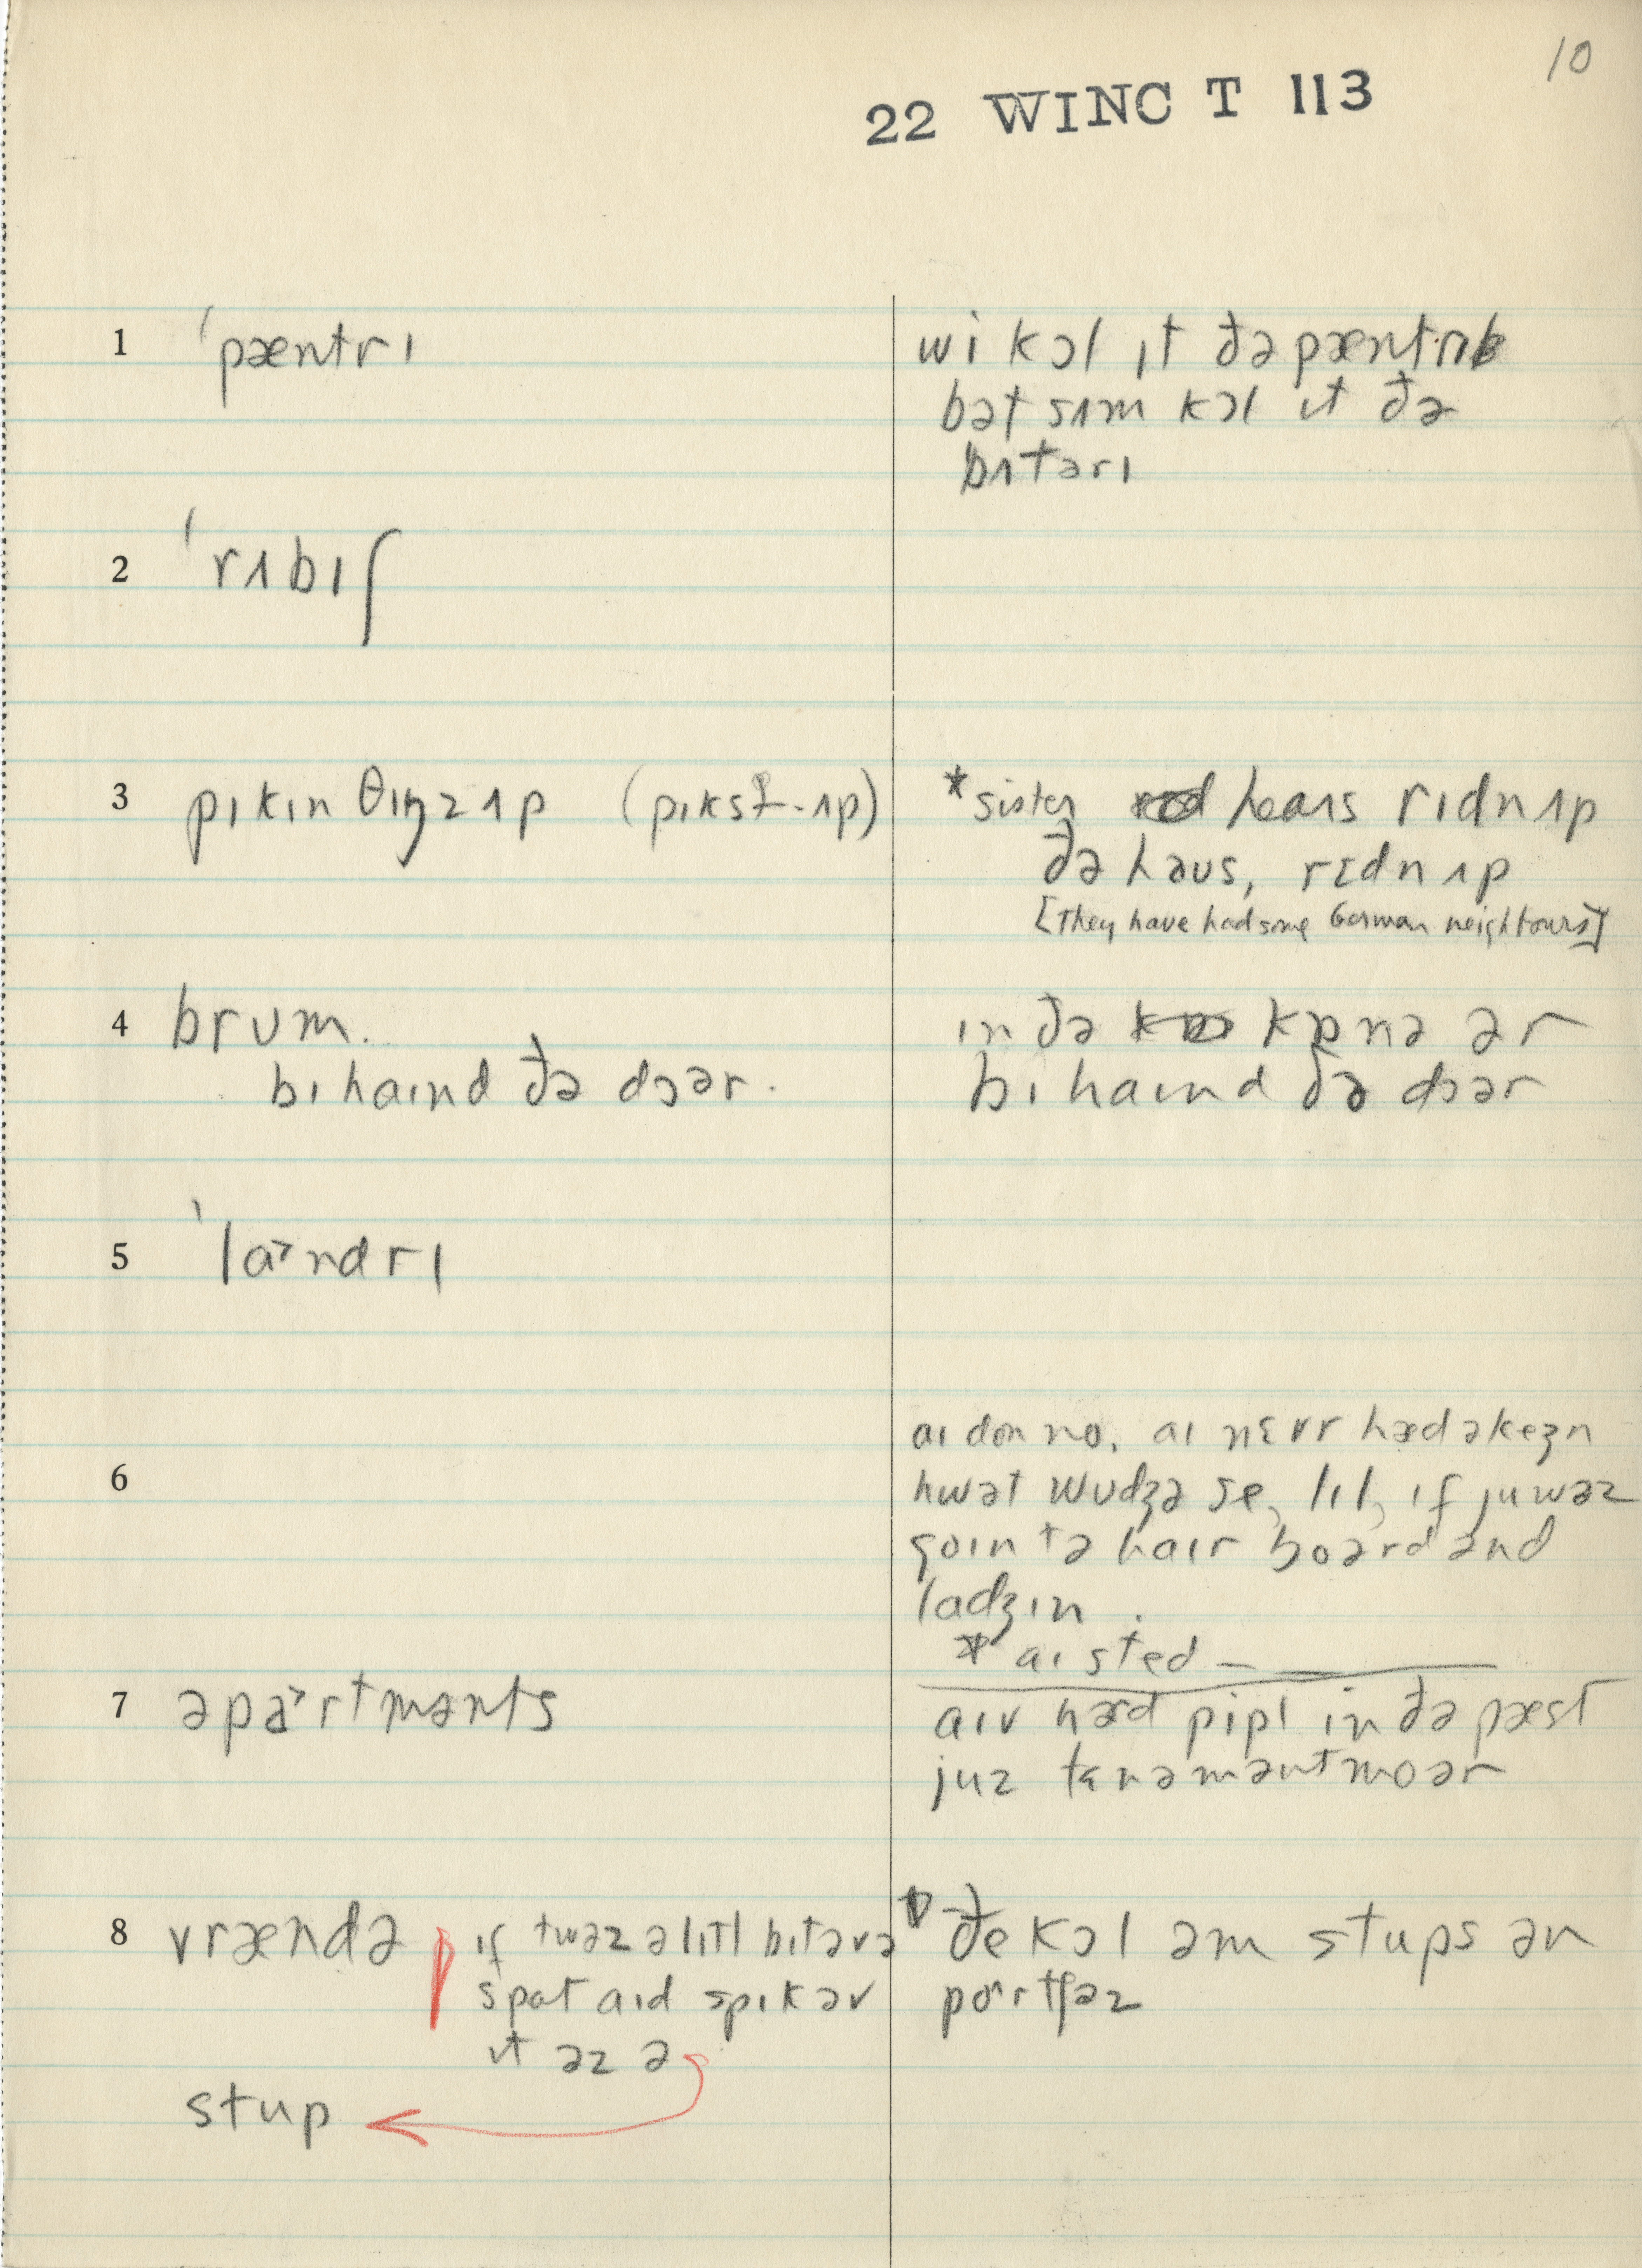 10
22 WINC T 113
1 ˈpæntrɪ
wi kɔl ɪt ðə pæntrɪ
bət sʌm kɔl ɪt ðə
bʌtərɪ
2 ˈrʌbɪʃ
3 pɪkɪn θɪŋz ʌp (pɪks-ʌp)
*sister hears rɪdn ʌp
ðə həus, rɛdn ʌp
[They have had some German neighbours]
4 brʊm.
bɪhaɪnd ðə dɔər.
ɪn ðə kɒnə ər
bɪhaɪnd ðə dɔər
5 ˈla˃ndrɪ
6
aɪ don no. aɪ nɛvr hæd əkeʒn
hwət wʊdʒə se, lɪl, ɪf ju wəz
goɪn tə haɪr boərd ənd
ladʒɪn.
* aɪ sted —
7 əpa˃rtmənts
aɪv hærd pipl ɪn ðə pæst
juz tɛnəmənt moər
8 vrændə ɪf twəz ə lɪtl bɪt əv ə
spat aɪd spik əv
ɪt əz ə
stup
ðe kɔl əm stups ən
portʃəz